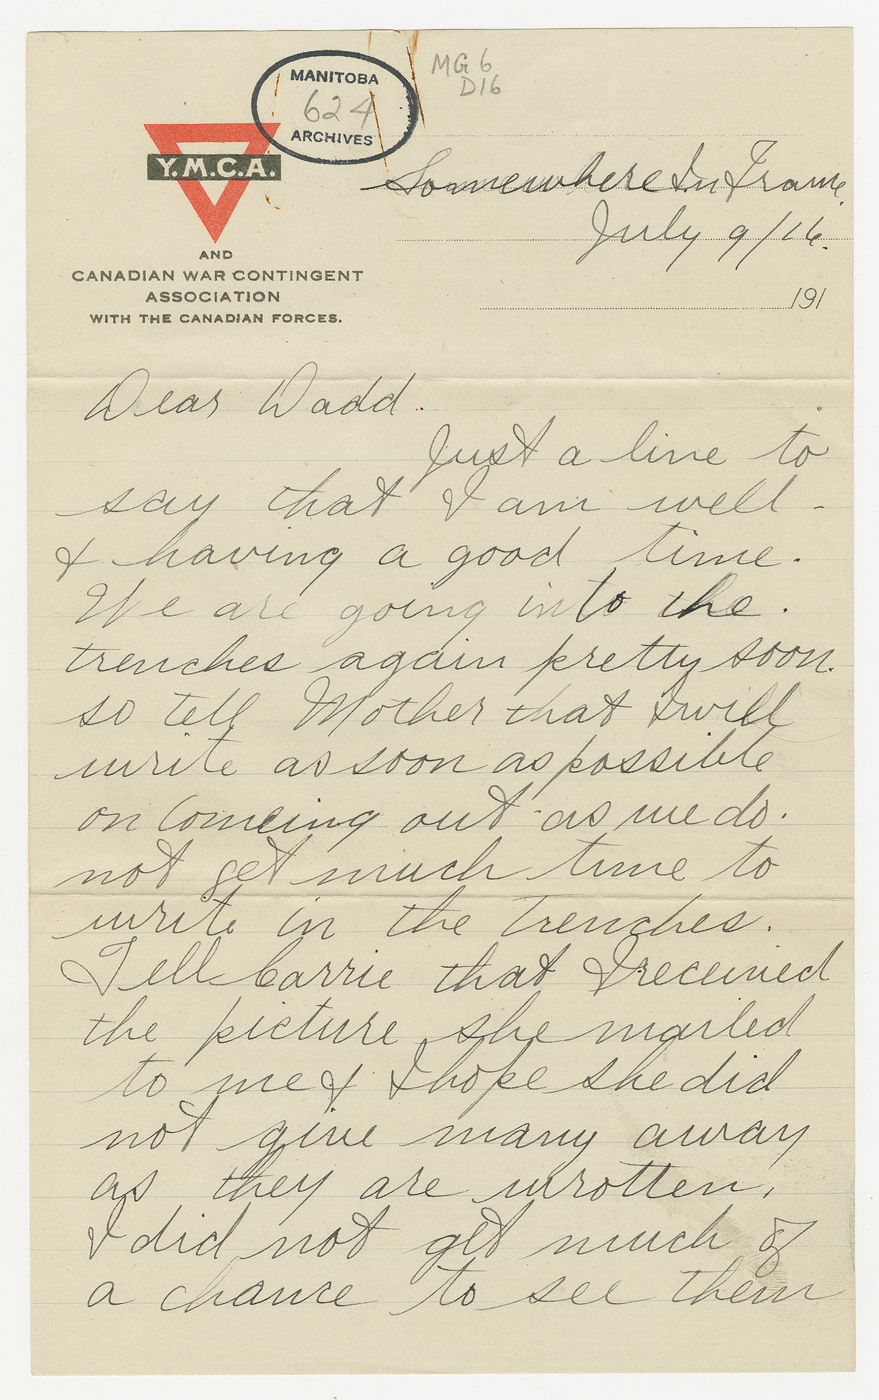 MG 6
D16
MANITOBA
624
ARCHIVES
Y.M.C.A.
AND
CANADIAN WAR CONTINGENT
ASSOCIATION
WITH THE CANADIAN FORCES.
Somewhere In France
July 9/16.
191
Dear Dadd.
Just a line to
say that I am well -
& having a good time.
We are going into the.
trenches again pretty soon.
so tell Mother that I will
write as soon as possible
on comeing out as we do.
not get much time to
write in the trenches.
Tell Carrie that I received
the picture she mailed
to me & I hope she did
not give many away
as they are wrotten.
I did not get much of
a chance to see them